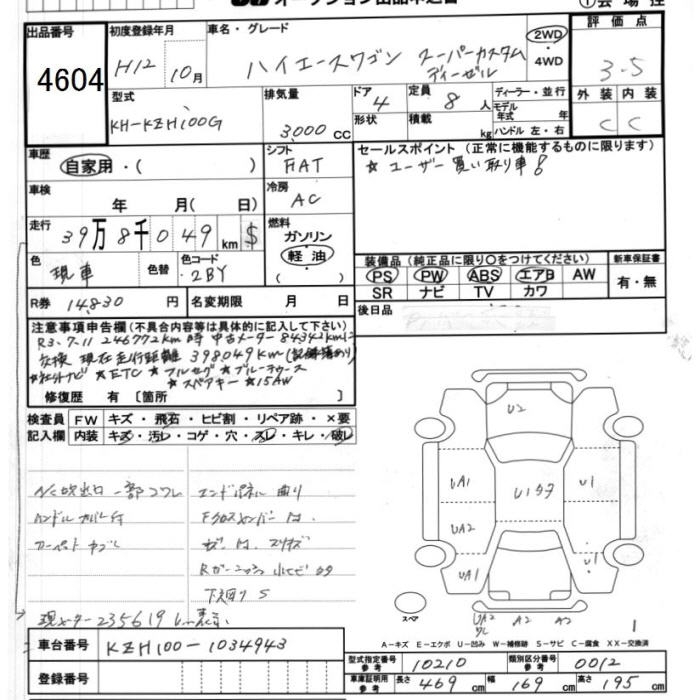 オークション出品申込書
①会場控
出品番号
4604
初度登録年月
H12 10月
車名・グレード
ハイエースワゴン スーパーカスタム
ディーゼル
2WD
・4WD
評価点
3.5
外装 内装
C C
型式
KH-KZH100G
排気量
3,000 CC
ドア 4
形状
定員 8 人
積載 kg
ディーラー・並行
モデル年式 年
ハンドル 左・右
車歴
自家用・( )
シフト
FAT
セールスポイント(正常に機能するものに限ります)
☆ユーザー買い取り車!
車検
年 月( 日)
冷房
AC
走行
39万8千049km $
燃料
ガソリン
軽油
( )
色
現車
色替
色コード
2BY
装備品(純正品に限り○をつけてください)
PS PW ABS エアB AW
SR ナビ TV カワ
新車保証書
有・無
R券 14,830 円
名変期限 月 日
後日品
注意事項申告欄(不具合内容等は具体的に記入して下さい)
R3.7.11 246772km時 中古メーター84342kmに
交換 現在走行距離 398049km(記録簿あり)
☆社外ナビ ☆ETC ☆フルセグ ☆ブルートゥース
☆スペアキー ☆15AW
修復歴 有[箇所 ]
検査員
記入欄
FW キズ・飛石・ヒビ割・リペア跡・×要
内装 キズ・汚レ・コゲ・穴・スレ・キレ・破レ
A/C吹出口一部コワレ
エンドパネル曲り
ハンドルカバー付
Fクロスメンバー
下廻りS
現メーター235619km表示
U2
UA1
UA2
UA1
U1
U1
UA2
A2
A2
1
スペア
A-キズ E-エクボ U-凹み W-補修跡 S-サビ C-腐食 XX-交換済
車台番号
KZH100-1034943
登録番号
型式指定番号
参考
10210
類別区分番号
参考
0012
車庫証明用
参考
長さ 469 cm
幅 169 cm
高さ 195 cm